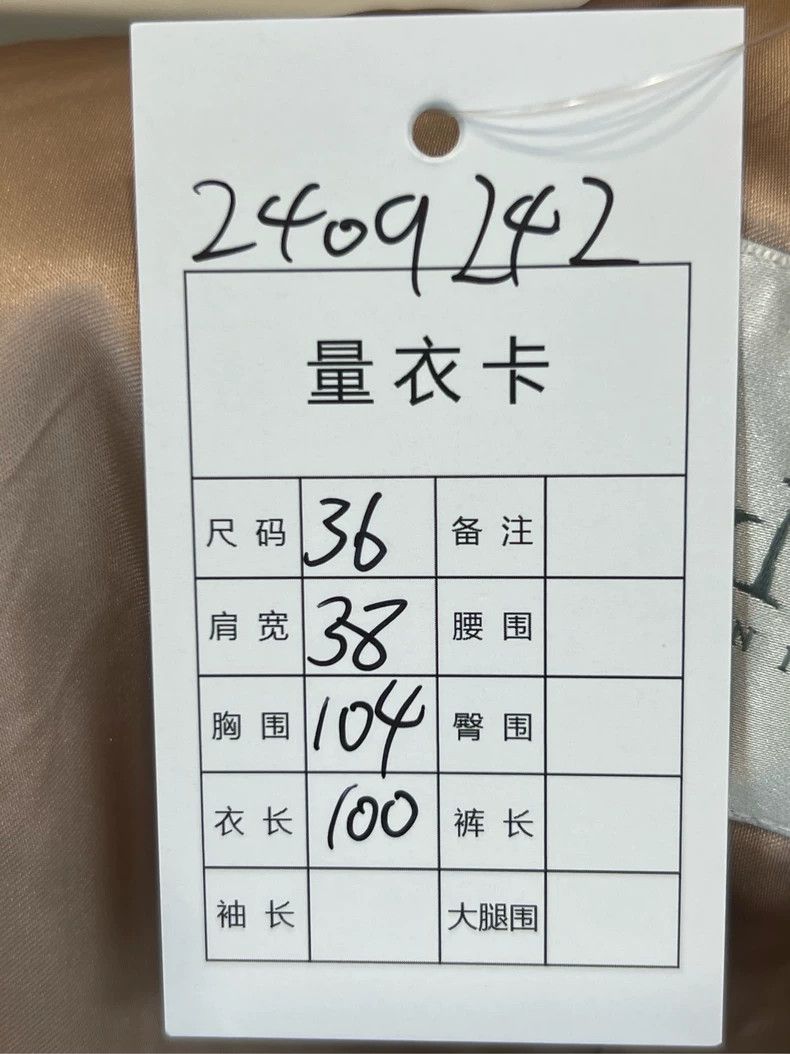 2409242
量衣卡
尺码 36 备注
肩宽 38 腰围
胸围 104 臀围
衣长 100 裤长
袖长 大腿围